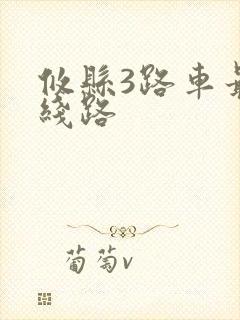 攸縣3路車
綫路
葡萄v